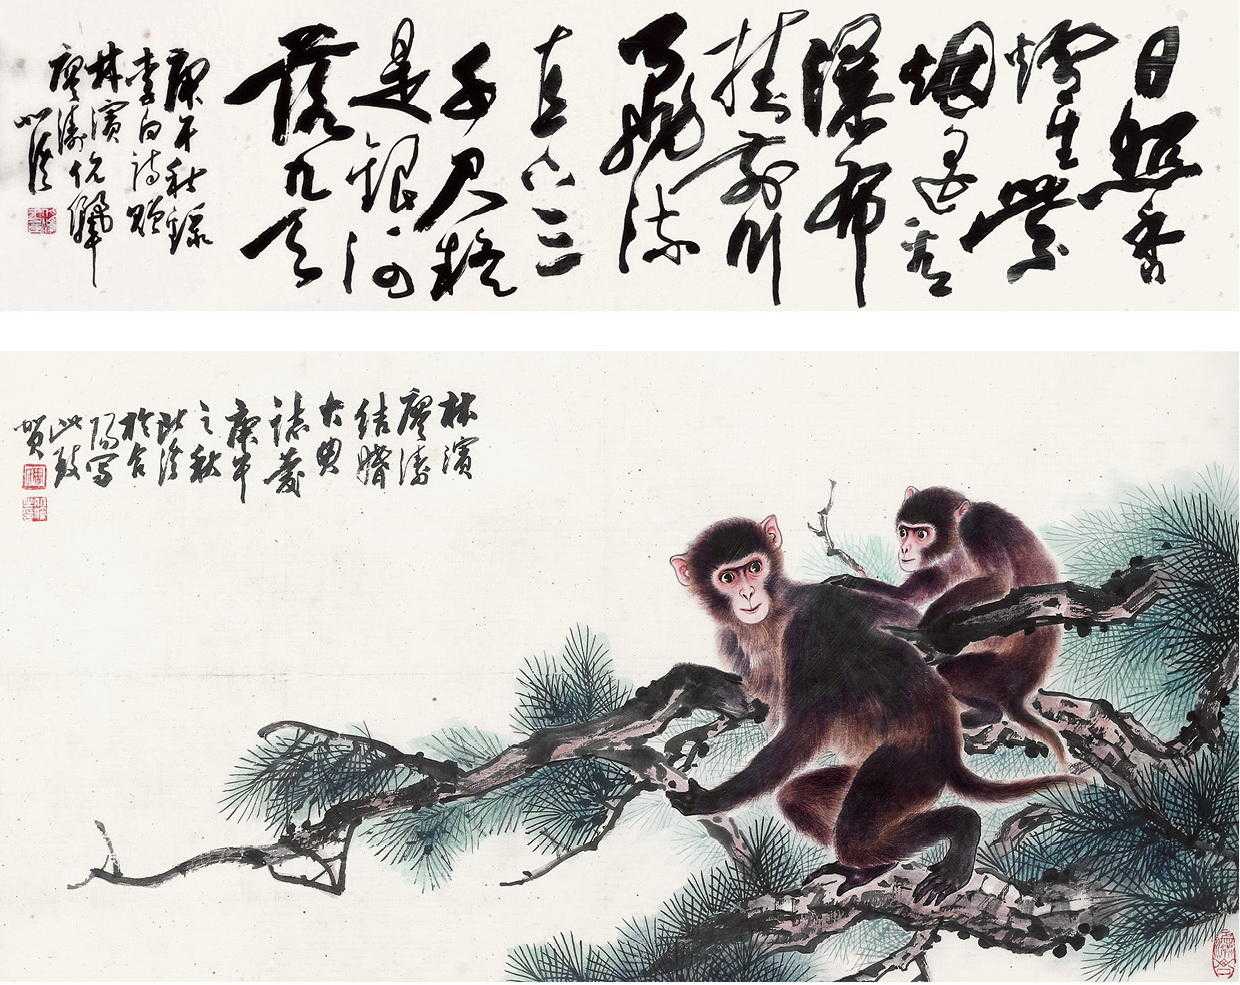 日照香
爐生紫
烟遥看
瀑布
挂前川
飛流
直下三
千尺疑
是銀河
落九天
庚午秋録
李白詩贈
林濱
廖濤伉儷
林濱
廖濤
结婚
大典
誌慶
庚午
之秋
於合
陽寫
此致
贺